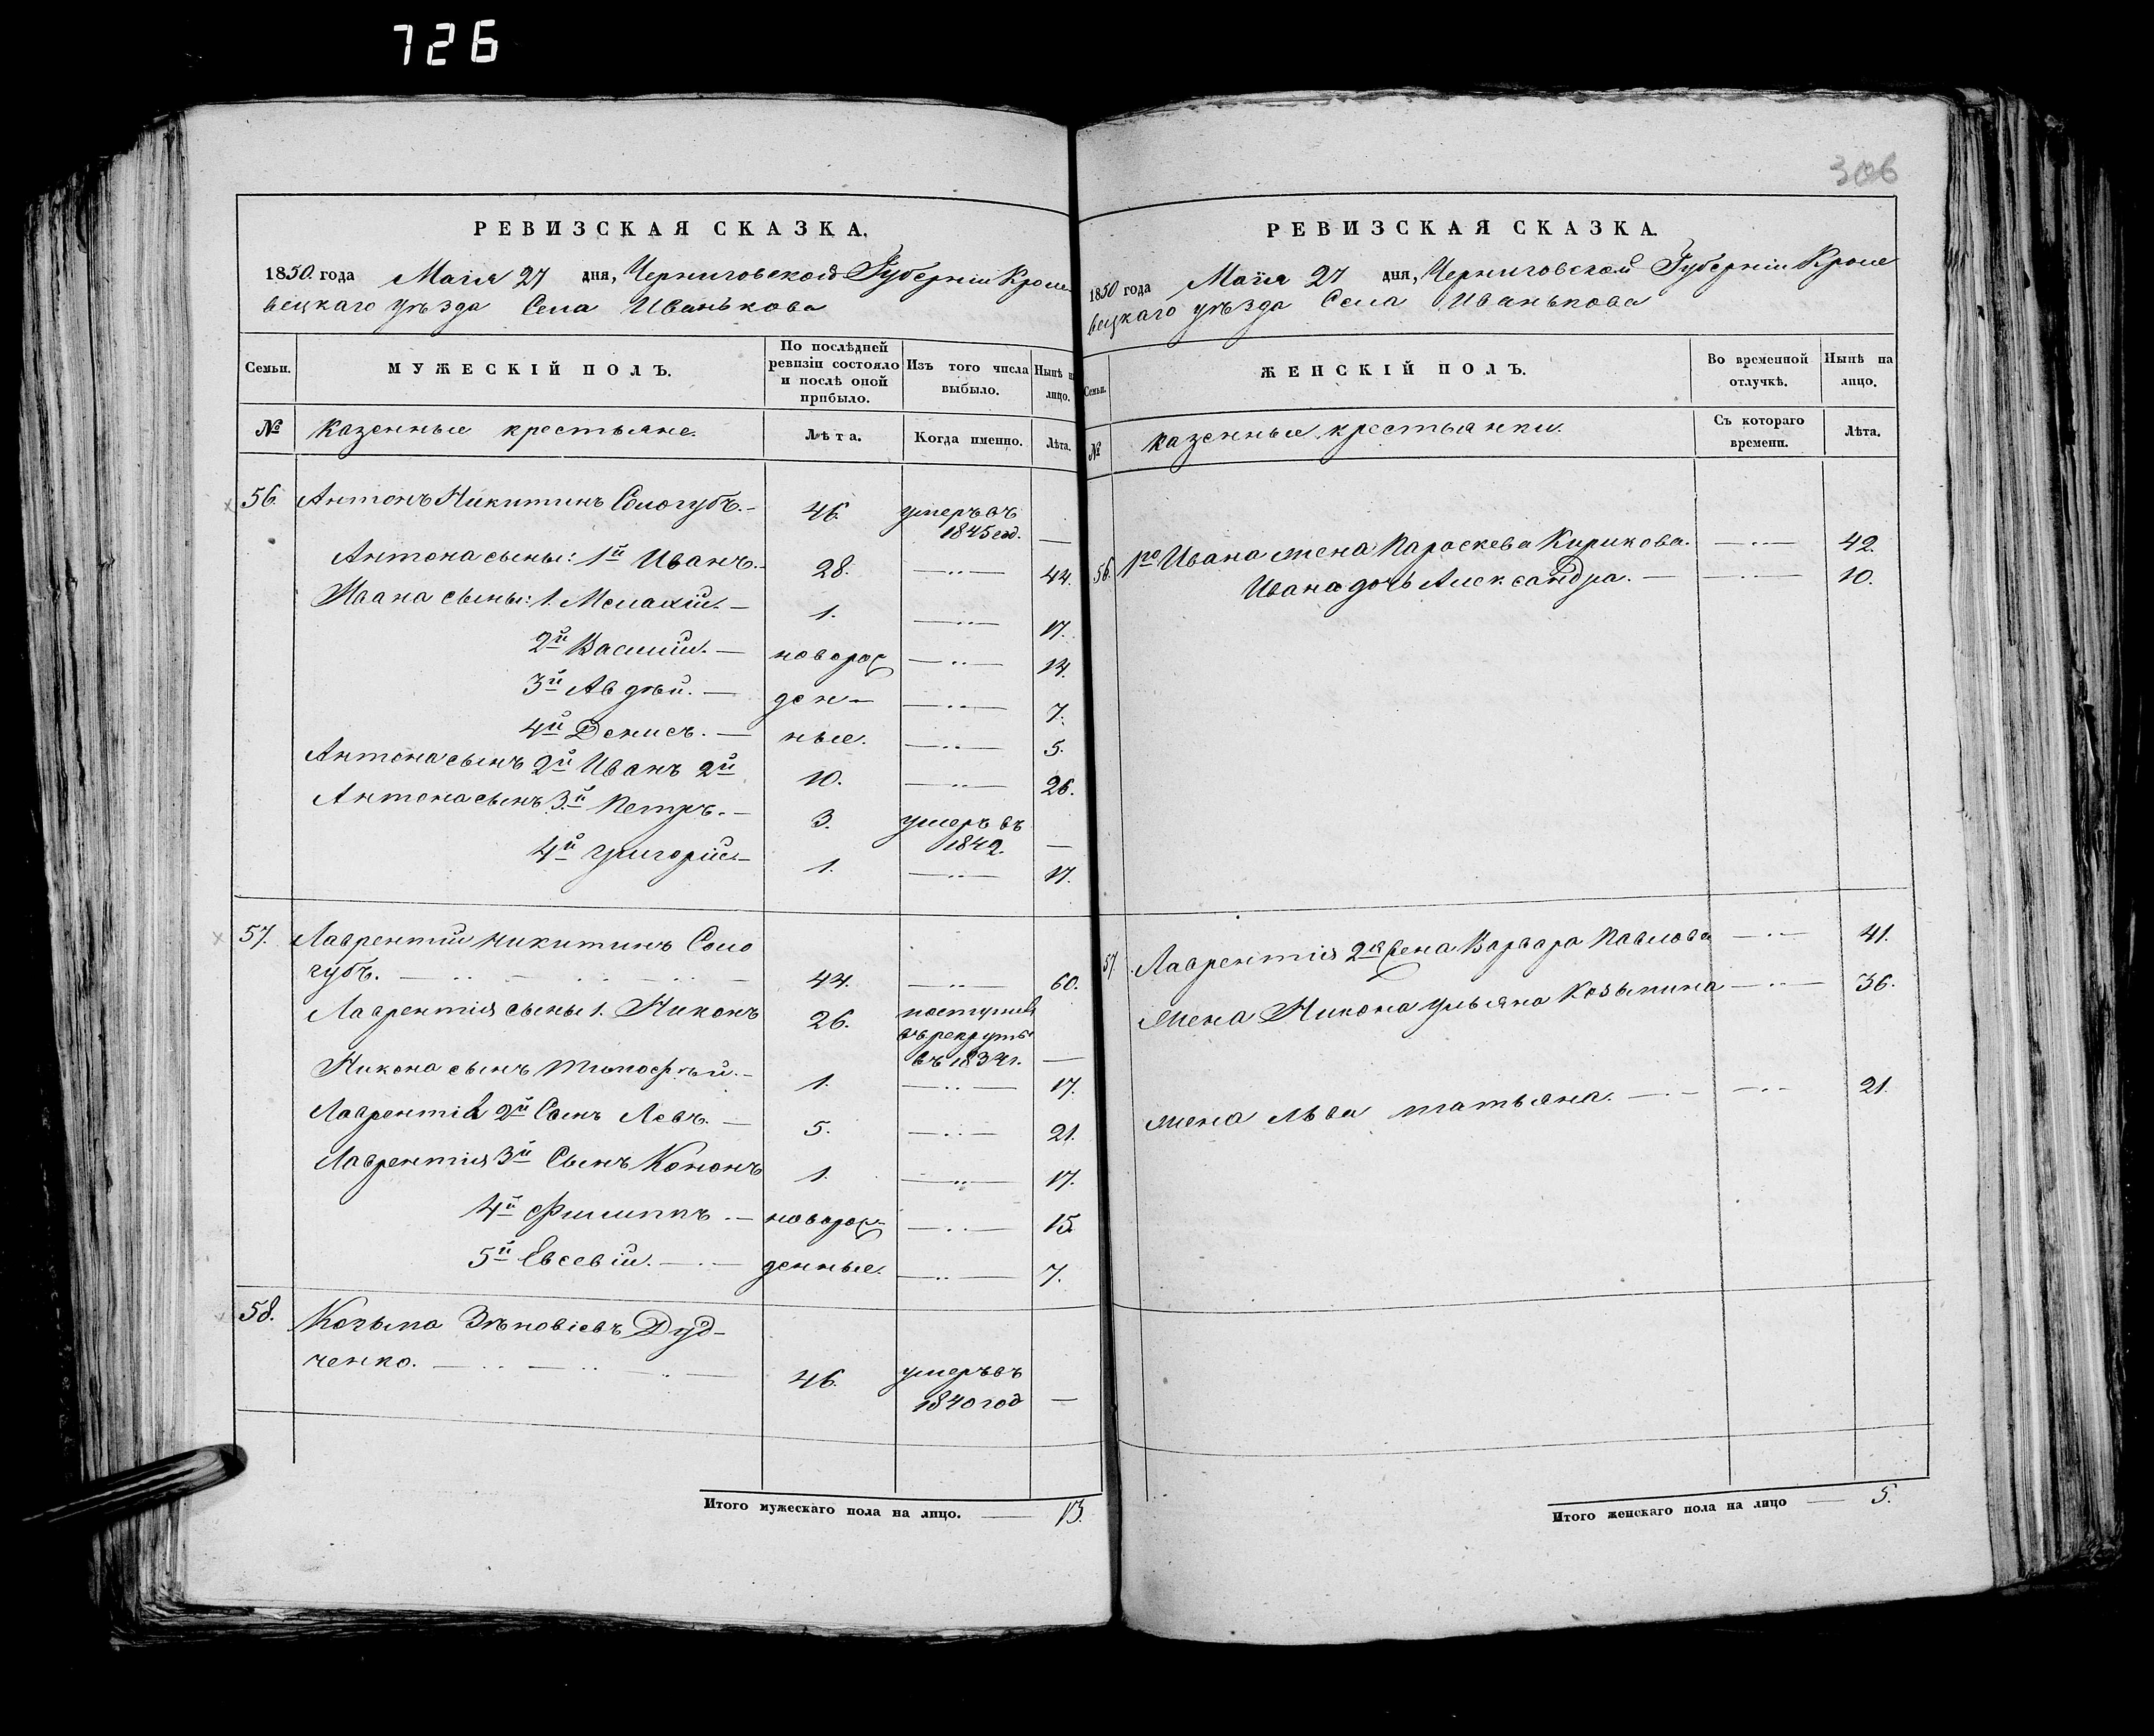 726
306
РЕВИЗСКАЯ СКАЗКА.
1850 года Маія 27 дня, Черниговской Губерніи Кроле
вецкаго уѣзда Села Иванькова
Семьи. МУЖЕСКІЙ ПОЛЪ. По послѣдней ревизіи состояло и послѣ оной прибыло. Изъ того числа выбыло. Нынѣ н лицо.
№ Казенные крестьяне. Лѣта. Когда именно. Лѣта.
56. Антонъ Никитинъ Сологубъ.— 46. умеръ въ
1845 год. —
Антона сыны: 1й Иванъ.— 28. —..— 44.
Ивана сыны: 1. Малахій.— 1. —..— 17.
2й Василій.— новорож —..— 14.
3й Авдѣй.— ден— —..— 7.
4й Денисъ.— ные. —..— 5.
Антона сынъ 2й Иванъ 2й 10. —..— 26.
Антона сынъ 3й Петръ.— 3. умеръ въ
1842. —
4й Григорій— 1. —..— 17.
57. Лаврентій Никитинъ Соло
губъ. — 44. —..— 60.
Лаврентія сыны 1. Никонъ 26. поступилъ
въ рекруты
въ 1834 г. —
Никона сынъ Тимофѣй.— 1. —..— 17.
Лаврентія 2й Сынъ Левъ.— 5. —..— 21.
Лаврентія 3й Сынъ Кононъ 1. —..— 17.
4й Филиппъ.— новорож —..— 15.
5й Евсевій.— денные. —..— 7.
58. Козьма Зѣновіевъ Дуд-
ченко. — 46. умеръ въ
1840 год —
Итого мужескаго пола на лицо. — 13.
РЕВИЗСКАЯ СКАЗКА.
1850 года Маія 27 дня, Черниговской Губерніи Кроле
вецкаго уѣзда Села Иванькова
Семьи. ЖЕНСКІЙ ПОЛЪ. Во временной отлучкѣ. Нынѣ на лицо.
№ Казенные крестьянки. Съ котораго времени. Лѣта.
56. 1го Ивана жена Параскева Кирикова. —..— 42.
Ивана дочь Александра.— —..— 10.
57. Лаврентія 2я жена Варвара Павлова —..— 41.
жена Никона Ульяна Козьмина —..— 36.
жена Льва Татьяна. — —..— 21.
Итого женскаго пола на лицо — 5.